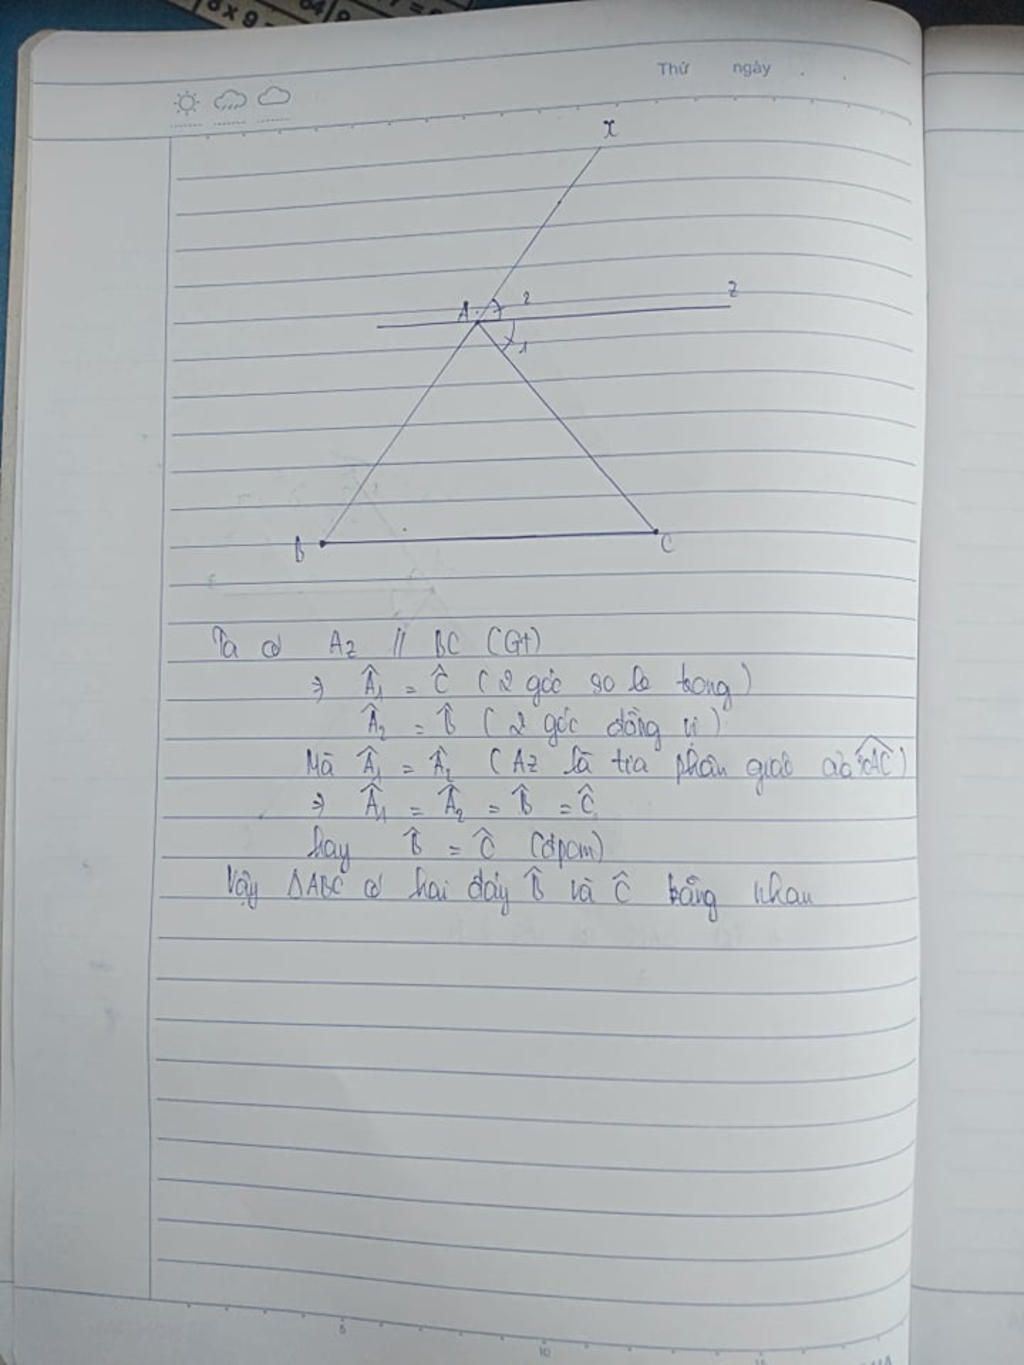 8 x 9
Thứ ngày
x
A 2 z
1
B C
Ta có Az // BC (Gt)
⇒ Â₁ = Ĉ (2 góc so le trong)
Â₂ = B̂ (2 góc đồng vị)
Mà Â₁ = Â₂ (Az là tia phân giác của xAC)
⇒ Â₁ = Â₂ = B̂ = Ĉ
hay B̂ = Ĉ (đpcm)
Vậy ΔABC có hai đáy B̂ và Ĉ bằng nhau
5
10